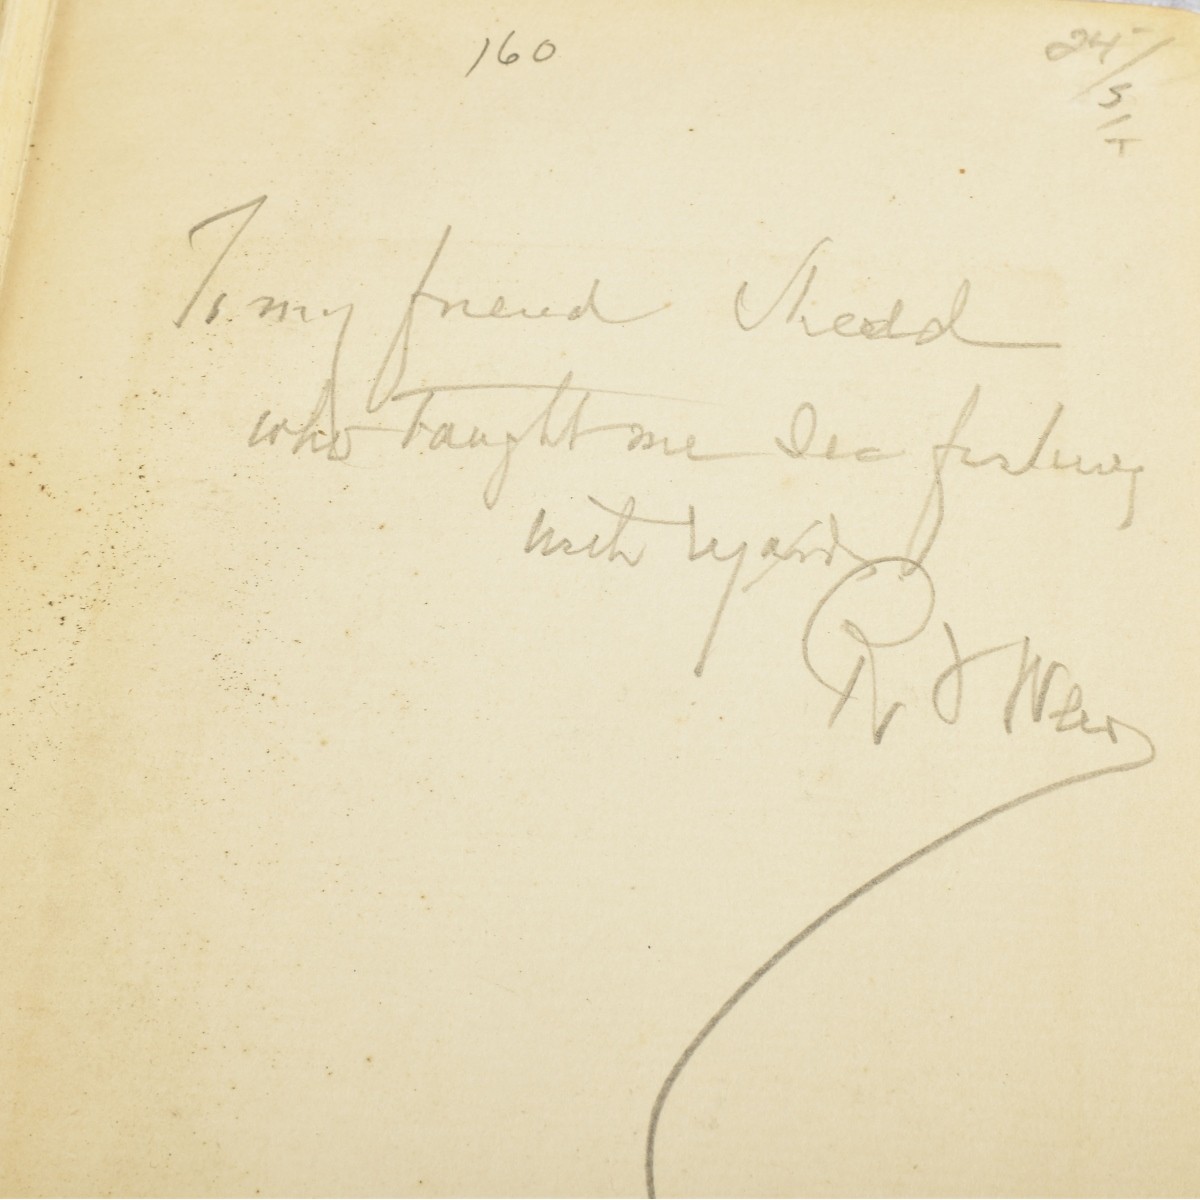 160
24/5
To my friend Shedd
who taught me Sea fishing
with regards
R J Weir